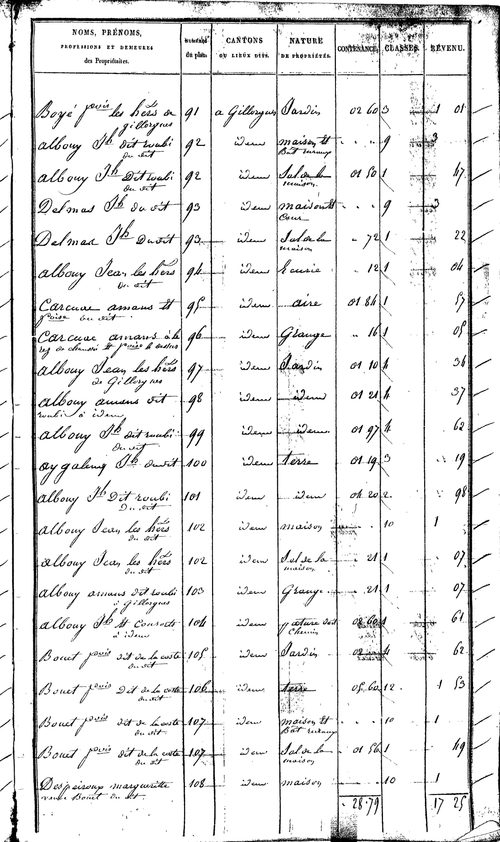 NOMS, PRÉNOMS, PROFESSIONS ET DEMEURES des Propriétaires. NUMÉROS du plan. CANTONS OU LIEUX DITS. NATURE DE PROPRIÉTÉS. CONTENANCE. CLASSES. REVENU.
Boyé f.cois les hers de 91 a Gillorgues Jardin 02 60 3 1 01
gillorgues
albouy Jh dit roubi 92 idem maison et . . . 9 3
du dit Bat ruraux
albouy Jh Dit roubi 92 idem Sol de la 01 50 1 47
du dit maison
Delmas Jh du dit 93 idem maison et . . . 9 3
Cour
Delmas Jh Du dit 93 idem Sol de la . 72 1 22
maison
albouy Jean les hers 94 idem Ecurie . 12 1 04
du dit
Carcuac amans et 95 idem aire 01 84 1 57
du dit
Carcuac amans à le 96 idem Grange . 16 1 05
rez de chaussé et
albouy Jean les hers 97 idem Jardin 01 10 4 36
de Gillorgues
albouy amans dit 98 idem idem 01 21 4 37
roubi à idem
albouy Jh dit roubi 99 idem idem 01 97 4 62
du dit
aygalenq Jh du dit 100 idem terre 01 19 3 19
albouy Jh Dit roubi 101 idem idem 04 20 2 98
Du dit
albouy Jean les hers 102 idem maison . . 10 1
du dit
albouy Jean les hers 102 idem Sol de la . 21 1 07
du dit maison
albouy amans dit roubi 103 idem Grange . 21 1 07
à Gillorgues
albouy Jh et Consorts 104 idem pature dit 08 60 1 61
à idem Chemin
Bouet f.cois dit de la coste 105 idem Jardin 02 4 62
du dit
Bouet f.cois Dit de la coste 106 idem terre 05 60 12 1 53
du dit
Bouet f.cois dit de la coste 107 idem maison et . . 10 1
du dit Bat ruraux
Bouet f.cois dit de la coste 107 idem Sol de la 01 56 1 49
du dit maison
Despeirous marguerite 108 idem maison . . 10 1
veuve Bouet du dit
28.79 17 25